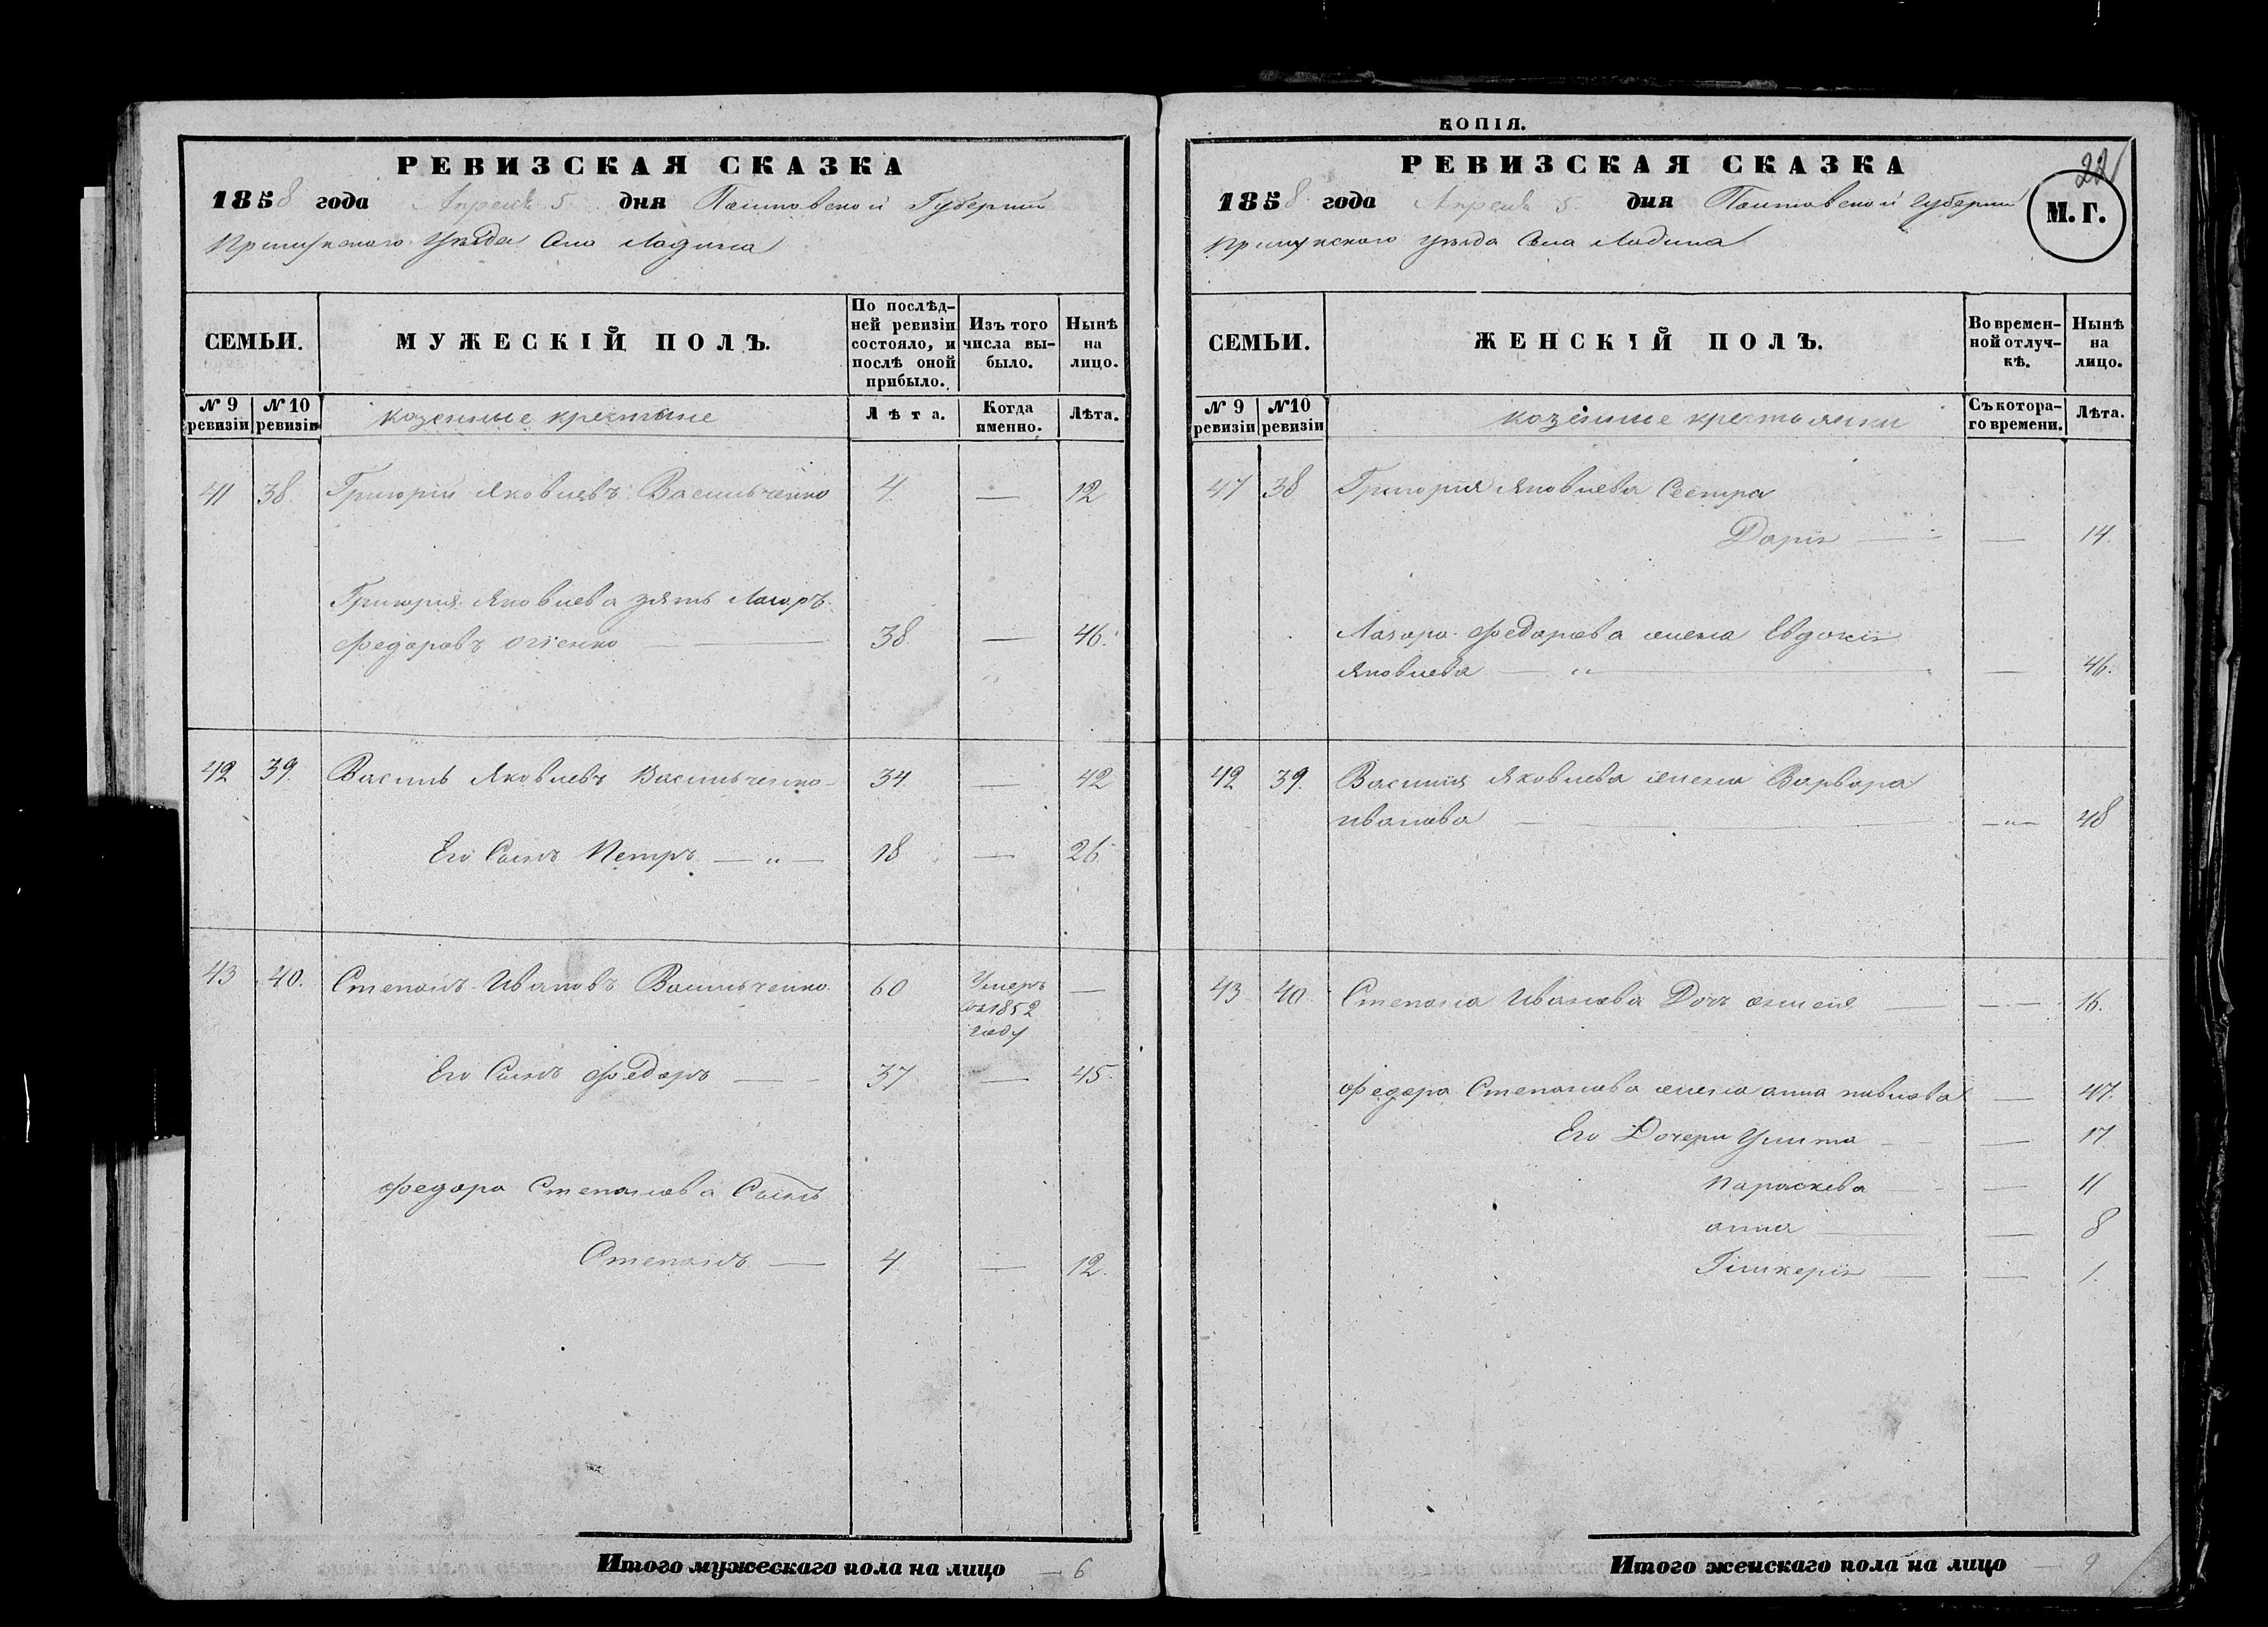 РЕВИЗСКАЯ СКАЗКА
1858 года Апреля 5 дня Полтавской Губернии
Прилукского уѣзда Села Ладина
СЕМЬИ.
МУЖЕСКІЙ ПОЛЪ.
По послѣд-
ней ревизіи
состояло, и
послѣ оной
прибыло.
Изъ того
числа вы-
было.
Нынѣ
на
лицо.
№ 9 ревизіи
№ 10 ревизіи
казенные крестьяне
Лѣта.
Когда именно.
Лѣта.
41 38. Григорій Яковлевъ Васильченко 4. — 12
Григорія Яковлева зять Лазоръ
Федоровъ Огіенко — 38 — 46.
42 39. Василь Яковлевъ Васильченко 34. — 42
Его Сынъ Петръ — „ — 18 — 26.
43 40. Степанъ Ивановъ Васильченко 60 Умеръ —
въ 1852
году
Его Сынъ Федоръ — 37 — 45.
Федора Степанова Сынъ
Степанъ — 4 — 12.
Итого мужескаго пола на лицо — 6
КОПІЯ.
РЕВИЗСКАЯ СКАЗКА
22
1858 года Апреля 5 дня Полтавской Губернии
М. Г.
Прилукского уѣзда Села Ладина
СЕМЬИ.
ЖЕНСКІЙ ПОЛЪ.
Во времен-
ной отлуч-
кѣ.
Нынѣ
на
лицо.
№ 9 ревизіи
№ 10 ревизіи
казенные крестьянки
Съ котора-
го времени.
Лѣта.
41 38 Григорія Яковлева Сестра
Дарія — — 14
Лазора Федорова жена Евдокія
Яковлева — „ — — 46.
42 39. Василія Яковлева жена Варвара
Иванова — — „ — 48
43 40. Степана Иванова Дочь — — 16.
Федора Степанова жена анна павлова — 47.
Его Дочери Улита — — 17
Параскева — — 11
анна — — 8
Гликерія — — 1.
Итого женскаго пола на лицо — 9